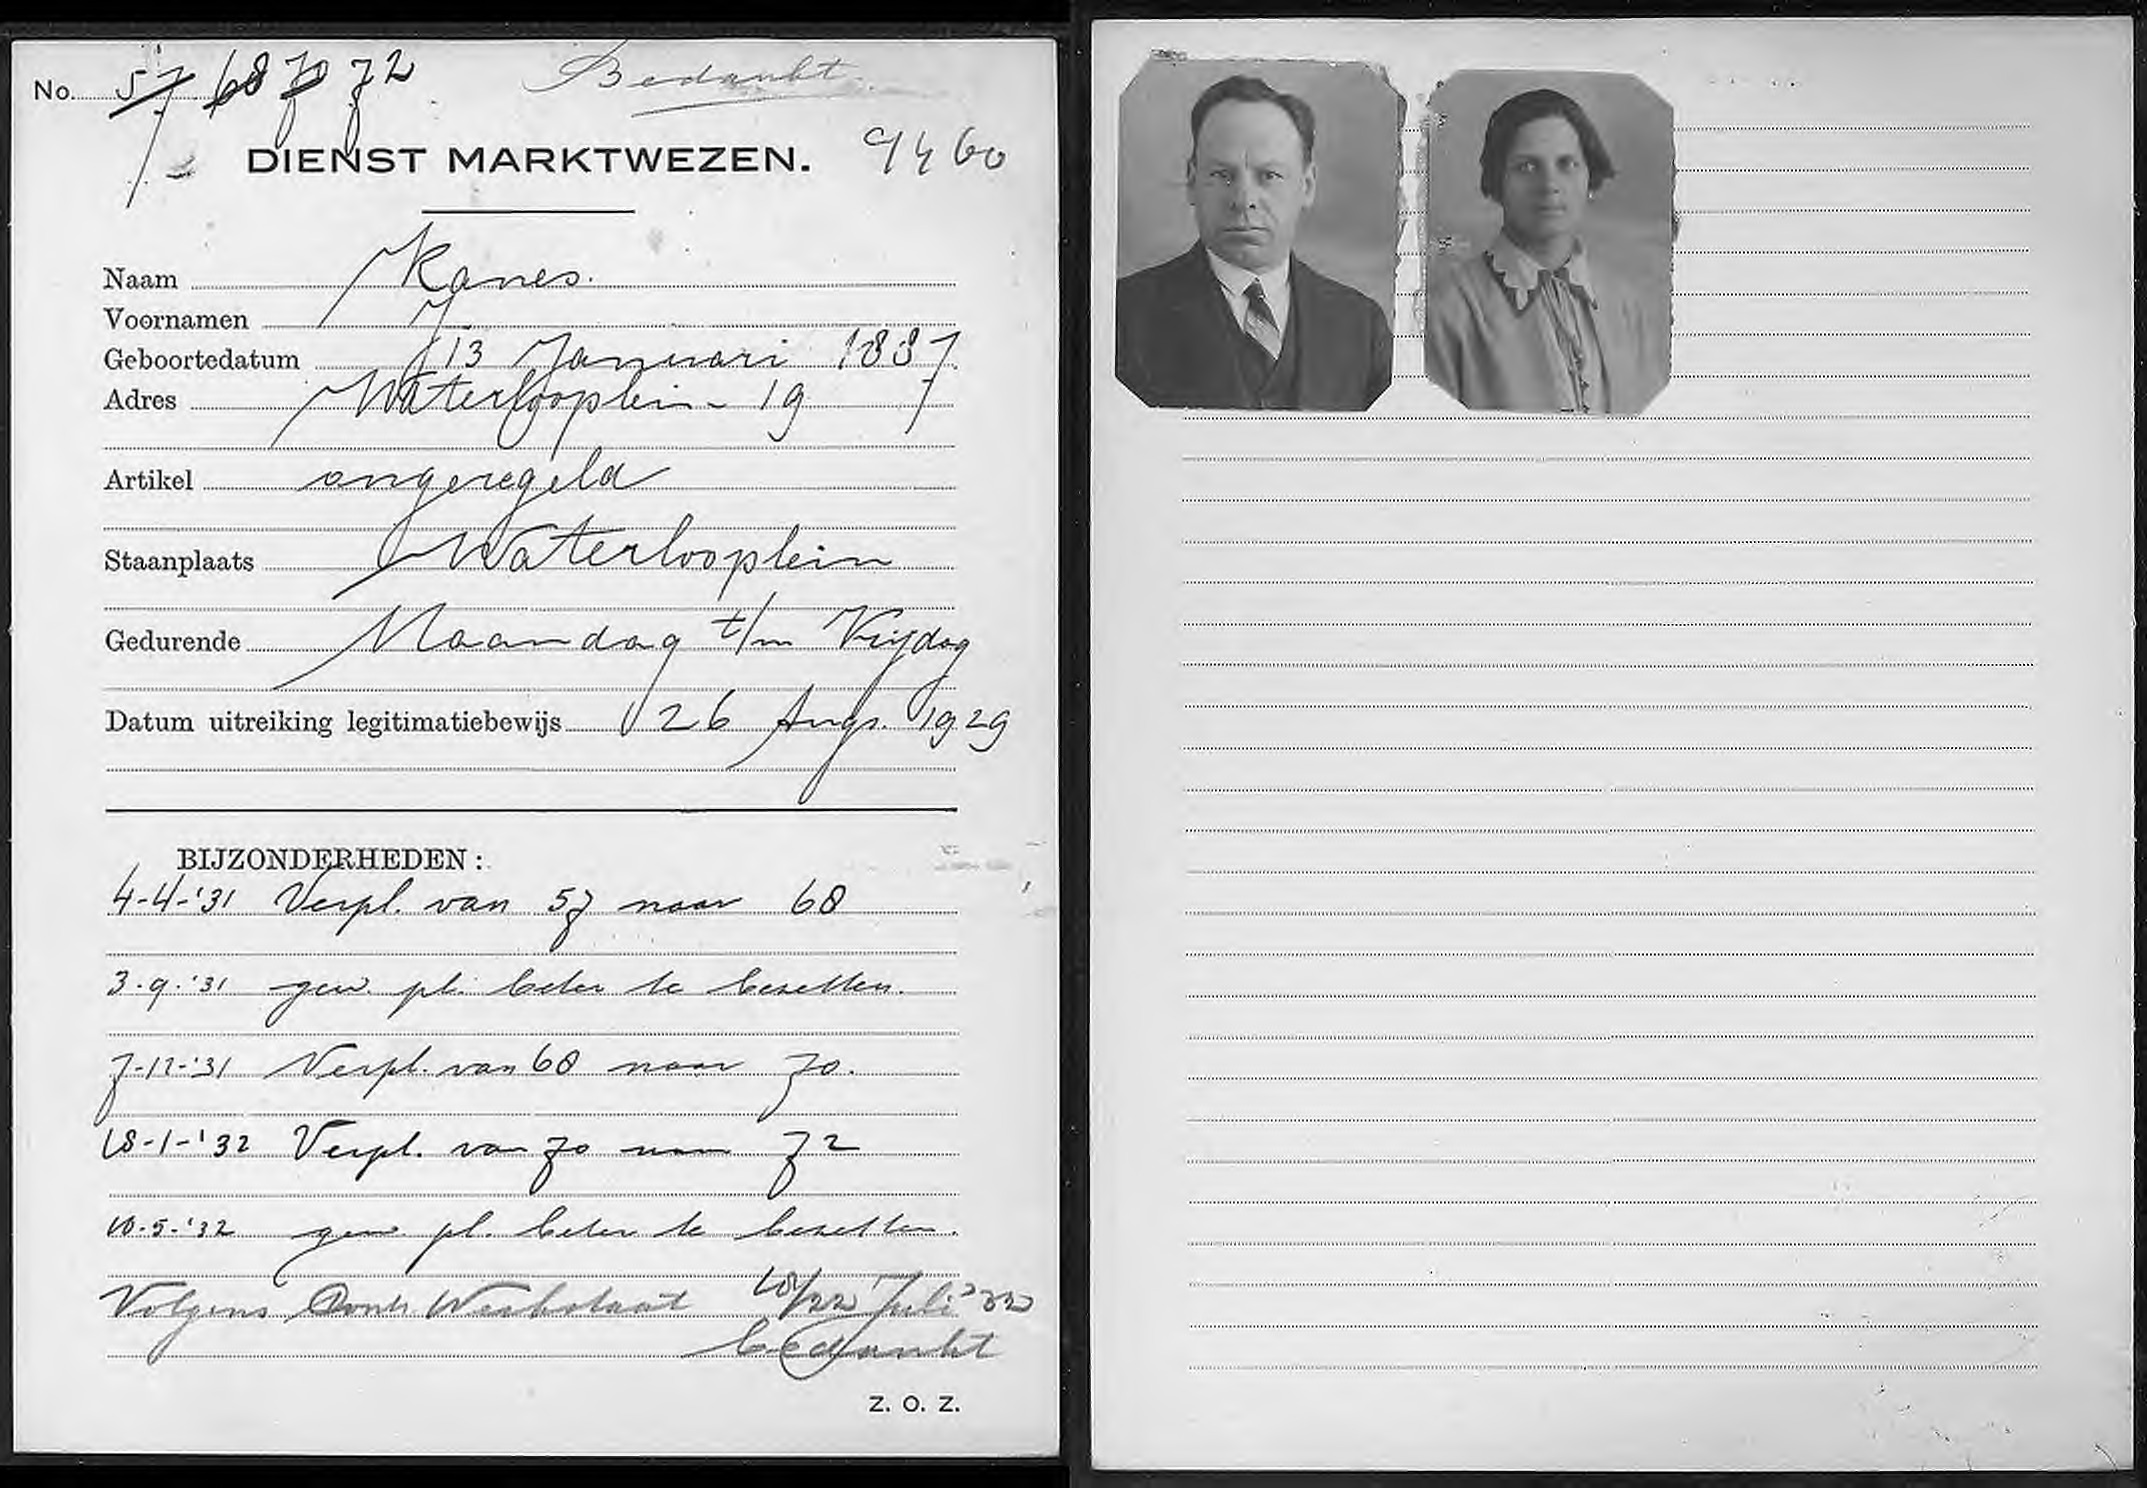 No. 57 68 70 72 Bedankt.
DIENST MARKTWEZEN. 9460
Naam Kanes.
Voornamen J.
Geboortedatum 13 Januari 1887
Adres Waterlooplein 19
Artikel ongeregeld
Staanplaats Waterlooplein
Gedurende Maandag t/m Vrijdag
Datum uitreiking legitimatiebewijs 26 Aug. 1929
BIJZONDERHEDEN:
4-4-'31 Verpl. van 57 naar 68
3-9-'31 gew. pl. beter te bezetten.
7-12-'31 Verpl. van 68 naar 70.
18-1-'32 Verpl. van 70 naar 72
10-5-'32 gew. pl. beter te bezetten.
Volgens Contr. Weekstaat 18/22 Juli '32
bedankt
Z. O. Z.